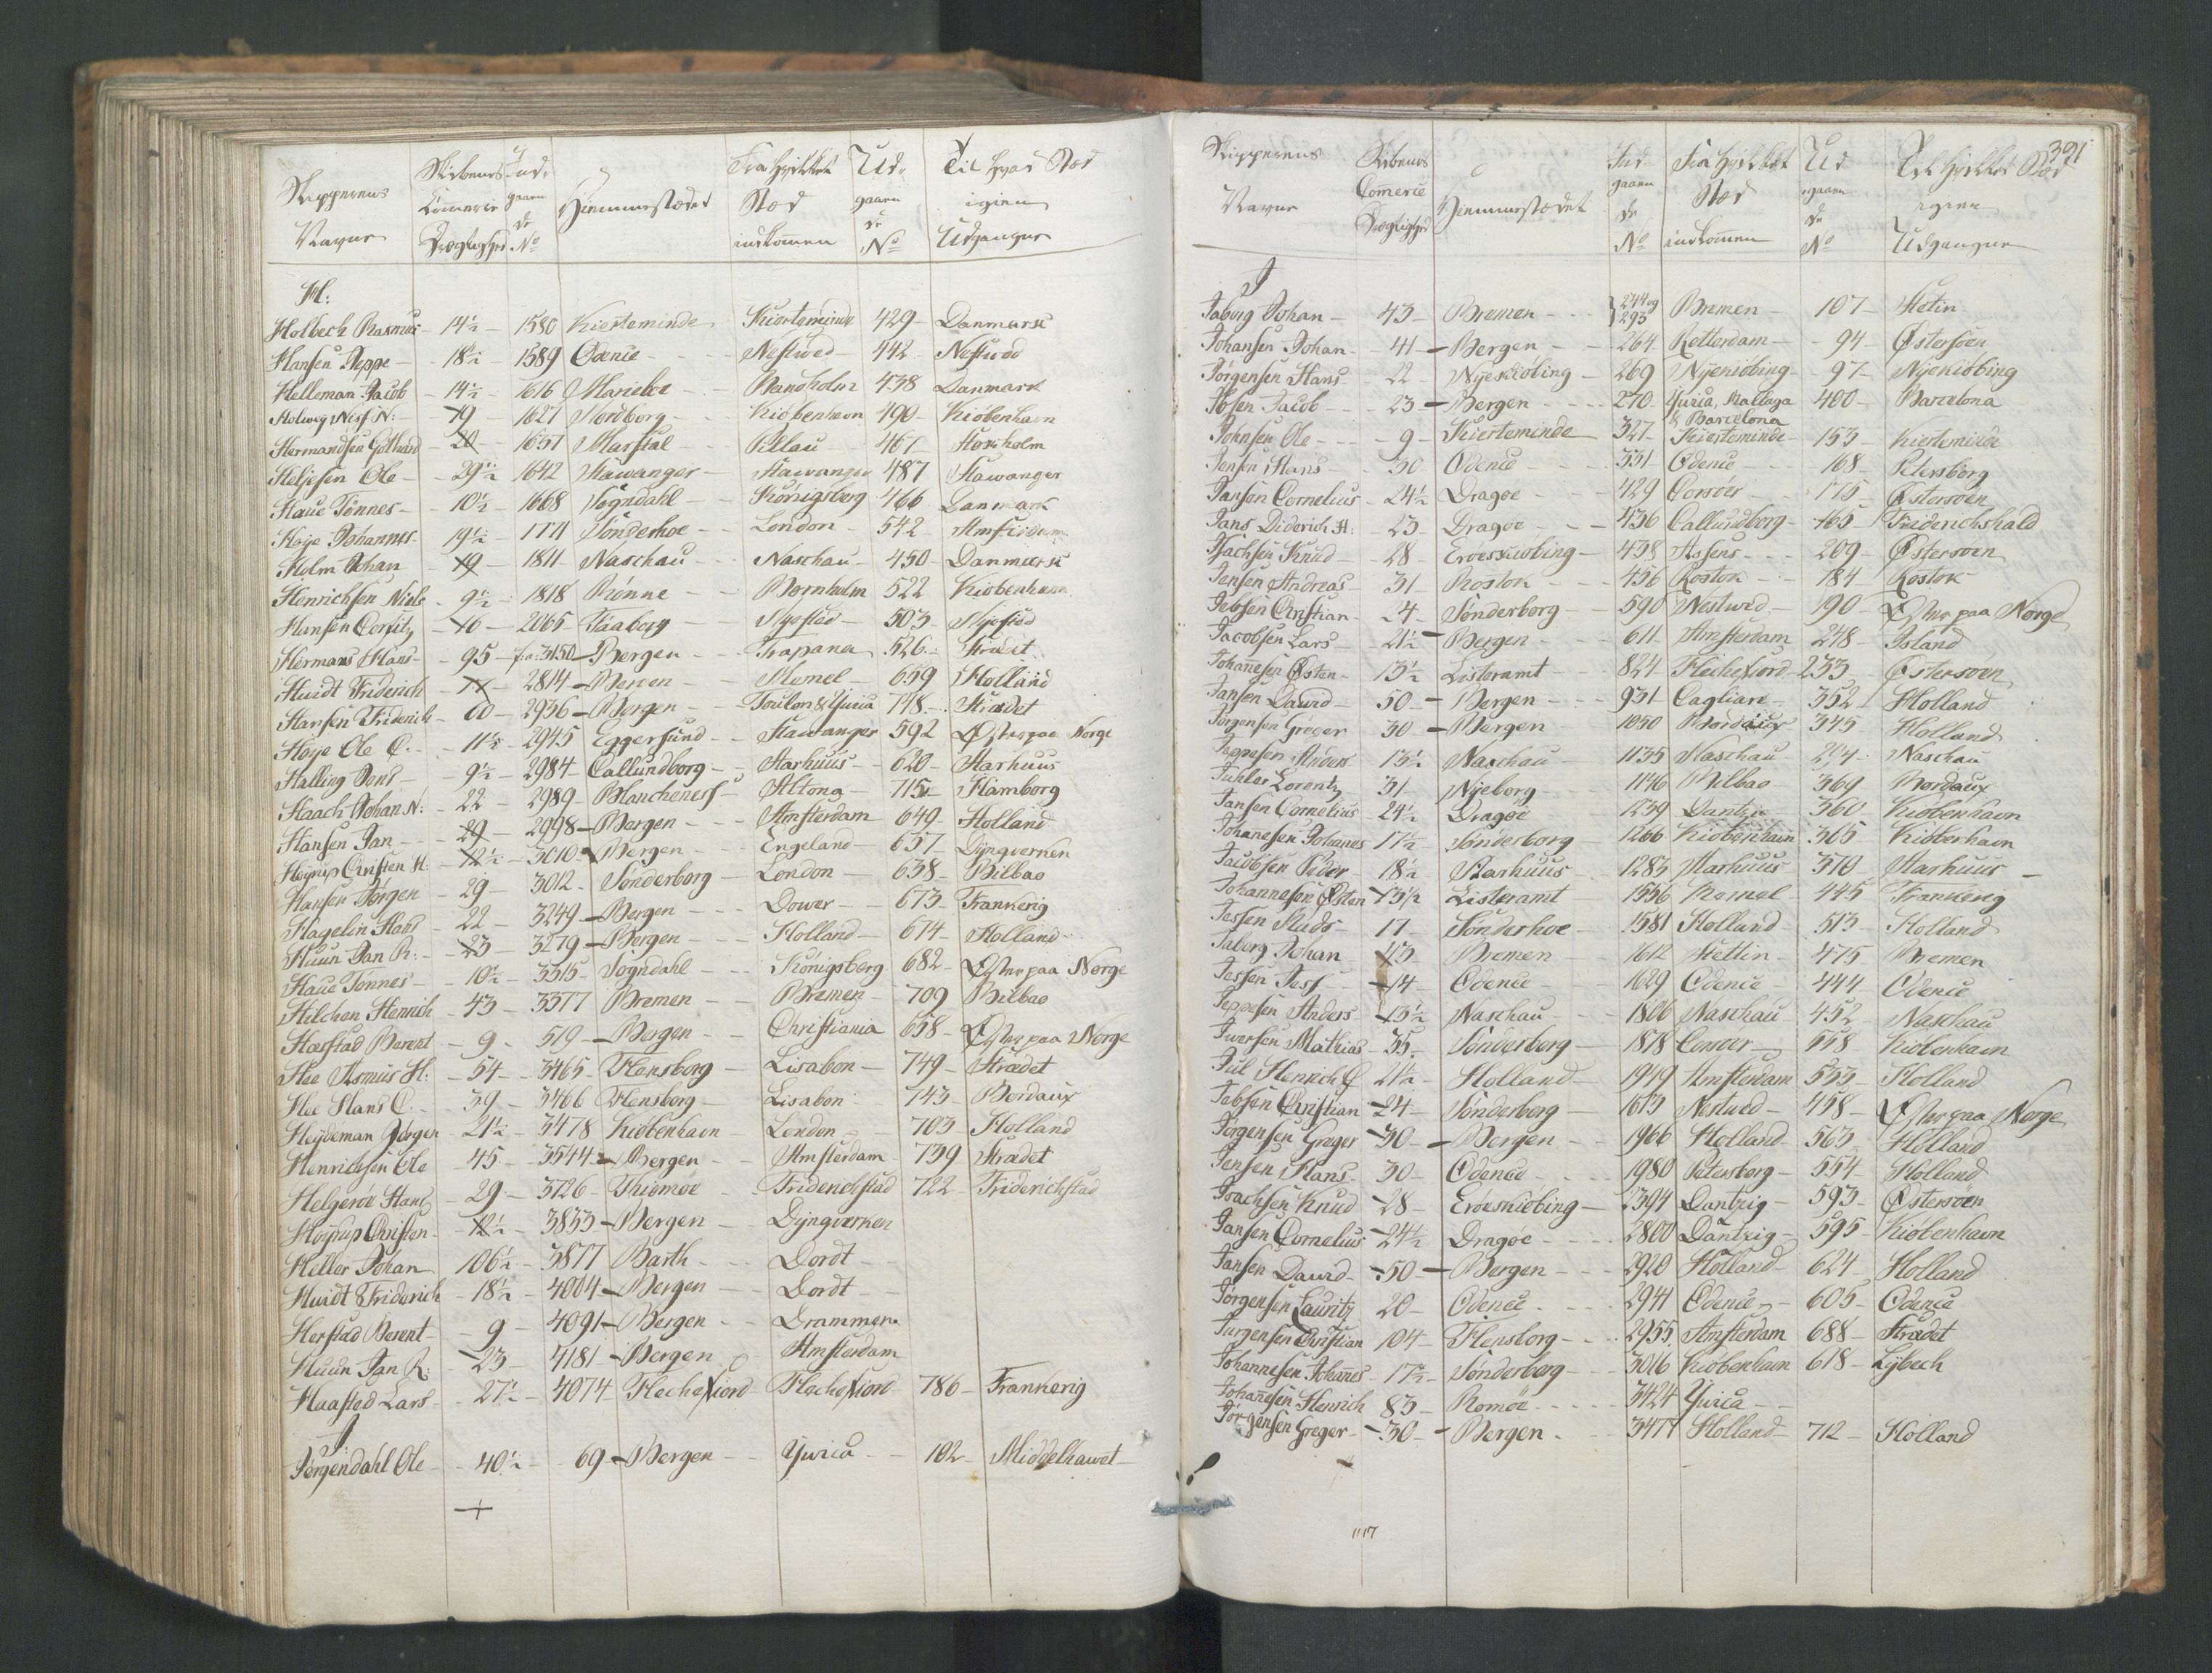 Skipperens Navne | Skibenes Comercie Drægtighed | Indgaaende No | Hiemmestædet | Fra hvilket Stæd indkommen | Udgaaende No | Til hvad Stæd igien Udgangne
H:
Holbech Rasmus - 14½ - 1580 Kierteminde - Kierteminde 429 - Danmark
Hansen Jeppe - 18½ - 1589 Odence - Nestwed - 442 Nestwed
Helleman Jacob - 14½ - 1616 Marieboe - Bandholm 438 Danmark
Holweg N: - 19 - 1627 Nordborg - Kiöbenhavn 490 - Kiöbenhavn
Hermandsen Gothard - 20 - 1637 Marstal - Pillau - 467 - Stockholm
Heljesen Ole - 29½ - 1642 Stawanger - Stawanger 487 Stawanger
Haue Tönnes - 10½ - 1668 Sogndahl - Königsberg 466 Danmark
Höje Johannes - 19½ - 1771 Sönderhoe - London - 542 - Amsterdam
Holm Johan - 19 - 1811 - Naschau - Naschau - 450 - Danmark
Henrichsen Niels - 9½ - 1818 Rönne - Bornholm 522 Kiöbenhavn
Hansen Corfitz - 16 - 2065 - Faaborg - Nysted - 503 - Nysted
Hermans Hans - 95 - 3150 - Bergen - Trapana - 526 - Strædet
Huidt Friderich - 2814 - Bergen - Memel - 659 Holland
Hansen Friderich - 60 - 2936 - Bergen - Toulon & Yvica 748 - Strædet
Höje Ole C. - 11½ - 2945 Eggersund - Stawanger 592 Öster paa Norge
Halling Jens - 9½ - 2984 - Callundborg - Aarhuus - 620 - Aarhuus
Haach Johan N: - 22 - 2989 - Blancheness - Altona - 715 - Hamborg
Hansen Jan - 29 - 2998 - Bergen - Amsterdam 649 - Holland
Höyrup Christen H. - 12½ - 3010 - Bergen - Engeland - 657 - Dyngverken
Hansen Jörgen - 29 - 3012 - Sönderborg - London - 638 - Bilbao
Hagelin Hans - 22 - 3249 - Bergen - Dower - 673 - Frankerig
Huun Jan R: - 23 - 3279 - Bergen - Holland - 674 - Holland
Haue Tönnes - 10½ - 3315 - Sogndahl - Königsberg 682 - Öster paa Norge
Hilchen Henrich - 43 - 3377 Bremen - Bremen - 709 Bilbao
Harstad Berent - 9 - 519 - Bergen - Christiania 658 - Öster paa Norge
Hee Asmus H: - 54 - 3465 - Flensborg - Lisabon - 749 - Strædet
Hee Hans C. - 39 - 3466 Flensborg - Lisabon - 743 - Bordaux
Heydeman Jörgen - 21½ - 3478 Kiöbenhavn - London - 703 - Holland
Henrichsen Ole - 45 - 3544 - Bergen - Amsterdam - 739 Strædet
Helgeröe Hans - 29 - 3726 - Thiömöe - Friderichstad 722 - Friderichstad
Höyrup Christen - 12½ - 3833 - Bergen - Dyngverken
Heller Johan - 106½ - 3877 Barth - Dordt
Huidt Friderich - 18½ - 4004 - Bergen - Dordt
Herstad Berent - 9 - 4091 - Bergen - Drammen
Huun Jan R: - 23 - 4181 - Bergen - Amsterdam
Haastad Lars - 27½ - 4074 Flechefiord - Flechefiord - 786 - Frankerig
J
Jörgendahl Ole - 40½ - 69 - Bergen - Yvica - 102 - Middelhawet
391
Skipperens Navne | Skibenes Comercie Drægtighed | Hiemmestædet | Indgaaende No | Fra hvilket Stæd indkommen | Udgaaende No | Til hvilket Stæd igien Udgangne
J
Jaborg Johan - 43 - Bremen - 244 og 293 Bremen - 107 - Stetin
Johansen Johan - 41 - Bergen - 264 Rotterdam - 94 - Östersöen
Jörgensen Hans - 22 - Nyekiöbing - 269 Nyeniöbing - 97 - Nyeniöbing
Ibsen Jacob - 23 - Bergen - 270 Yvica, Mallaga & Barcelona 400 - Barcelona
Johnsen Ole - 9 - Kierteminde - 327 - Kierteminde - 153 - Kierteminde
Jensen Hans - 30 - Odence - 331 - Odence - 168 - Petersborg
Jansen Cornelius - 24½ - Dragöe - 429 Corsöer - 175 - Östersöen
Jans Diderich H. - 23 - Dragöe - 436 Callundborg - 165 - Friderichshald
Isachsen Knud - 28 - Eroeskiöbing - 438 Assens - 209 - Östersöen
Jensen Andreas - 31 - Rostok - 456 Rostok - 184 Rostok
Jebsen Christian - 24 - Sönderborg - 590 Nestwed - 190 - Öster paa Norge
Jacobsen Lars - 21½ - Bergen - 611 Amsterdam 248 - Island
Johannesen Östen - 13½ - Listeramt - 824 Flechefiord 233 - Östersöen
Jansen David - 50 - Bergen - 931 Cagliare - 352 - Holland
Jörgensen Gröger - 30 - Bergen - 1050 Bordaux 345 - Holland
Jeppesen Anders - 13½ - Naschau - 1135 Naschau - 274 - Naschau
Juhler Lorentz - 31 - Nyeborg - 1146 Bilbao - 369 Bordaux
Jansen Cornelius 24½ - Dragöe - 1239 Dantzig - 360 Kiöbenhavn
Johanesen Johannes 17½ - Sönderborg - 1266 Kiöbenhavn 365 - Kiöbenhavn
Jacobsen Peder - 18½ - Aarhuus - 1283 Aarhuus 370 - Aarhuus
Johannesen Östen 13½ - Listeramt - 1556 Memel - 445 - Frankerig
Jessen Mads - 17 - Sönderhoe - 1581 Holland - 513 - Holland
Jaborg Johan - 43 - Bremen - 1612 Stettin - 475 - Bremen
Jessen Jess - 14 - Odence - 1629 Odence - 444 - Odence
Jeppesen Anders - 13½ - Naschau - 1806 Naschau - 452 - Naschau
Iwersen Mathias - 35 - Sönderborg - 1878 Corsöer - 558 Kiöbenhavn
Juel Henrich C 21½ - Holland - 1949 Amsterdam 533 - Holland
Jebsen Christian - 24 - Sönderborg - 1613 Nestwed - 458 - Öster paa Norge
Jörgensen Greger - 30 - Bergen - 1966 Holland 563 - Holland
Jensen Hans - 30 - Odence - 1980 Petersborg - 554 - Holland
Isachsen Knud - 28 - Eröeskiöbing - 2394 Dantzig - 593 - Östersöen
Jansen Cornelius - 24½ - Dragöe - 2800 Dantzig - 595 - Kiöbenhavn
Jansen David - 50 - Bergen - 2920 Holland - 624 - Holland
Jörgensen Lauritz 20 - Odence - 2941 Odence - 605 - Odence
Jürgensen Christian 104 - Flensborg - 2955 Amsterdam 688 - Strædet
Johannesen Johannes - 17½ - Sönderborg - 3016 Kiöbenhavn 618 - Lybech
Johannesen Henrich 83 - Romöe - 3424 Yvica
Jörgensen Greger - 30 - Bergen - 3477 Holland - 712 - Holland